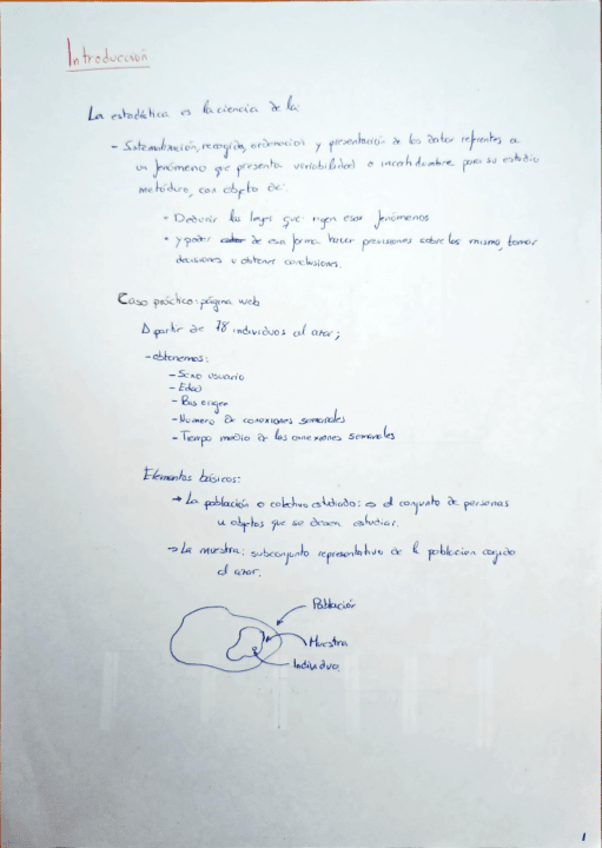 Introducción
La estadística es la ciencia de la:
- Sistematización, recogida, ordenacion y presentación de los datos referentes a
un fenómeno que presenta variabilidad o incertidumbre para su estudio
metódico, con objeto de:
• Deducir las leyes que rigen esos fenómenos
• y poder de esa forma hacer previsiones sobre los mismo, tomar
decisiones u obtener conclusiones.
Caso práctico: página web
A partir de 78 individuos al azar;
- obtenemos:
- Sexo usuario
- Edad
- Pais origen
- Numero de conexiones semanales
- Tiempo medio de las conexiones semanales
Elementos básicos:
→ La población o colectivo estudiado: es el conjunto de personas
u objetos que se desean estudiar.
→ La muestra: subconjunto representativo de la poblacion cogido
al azar.
Población
Muestra
Individuo.
1